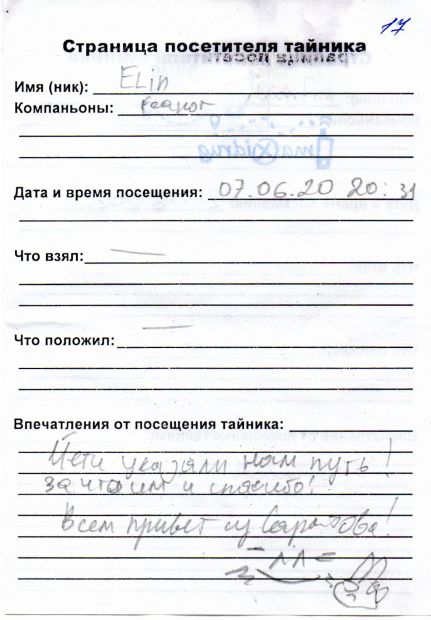 17
Страница посетителя тайника
Имя (ник): Elin
Компаньоны: Feanor
ma(x)idrug
Дата и время посещения: 07.06.20 20:31
Что взял: —
Что положил: —
Впечатления от посещения тайника:
Йети указали нам путь!
За что им и спасибо!
Всем привет из Саратова!